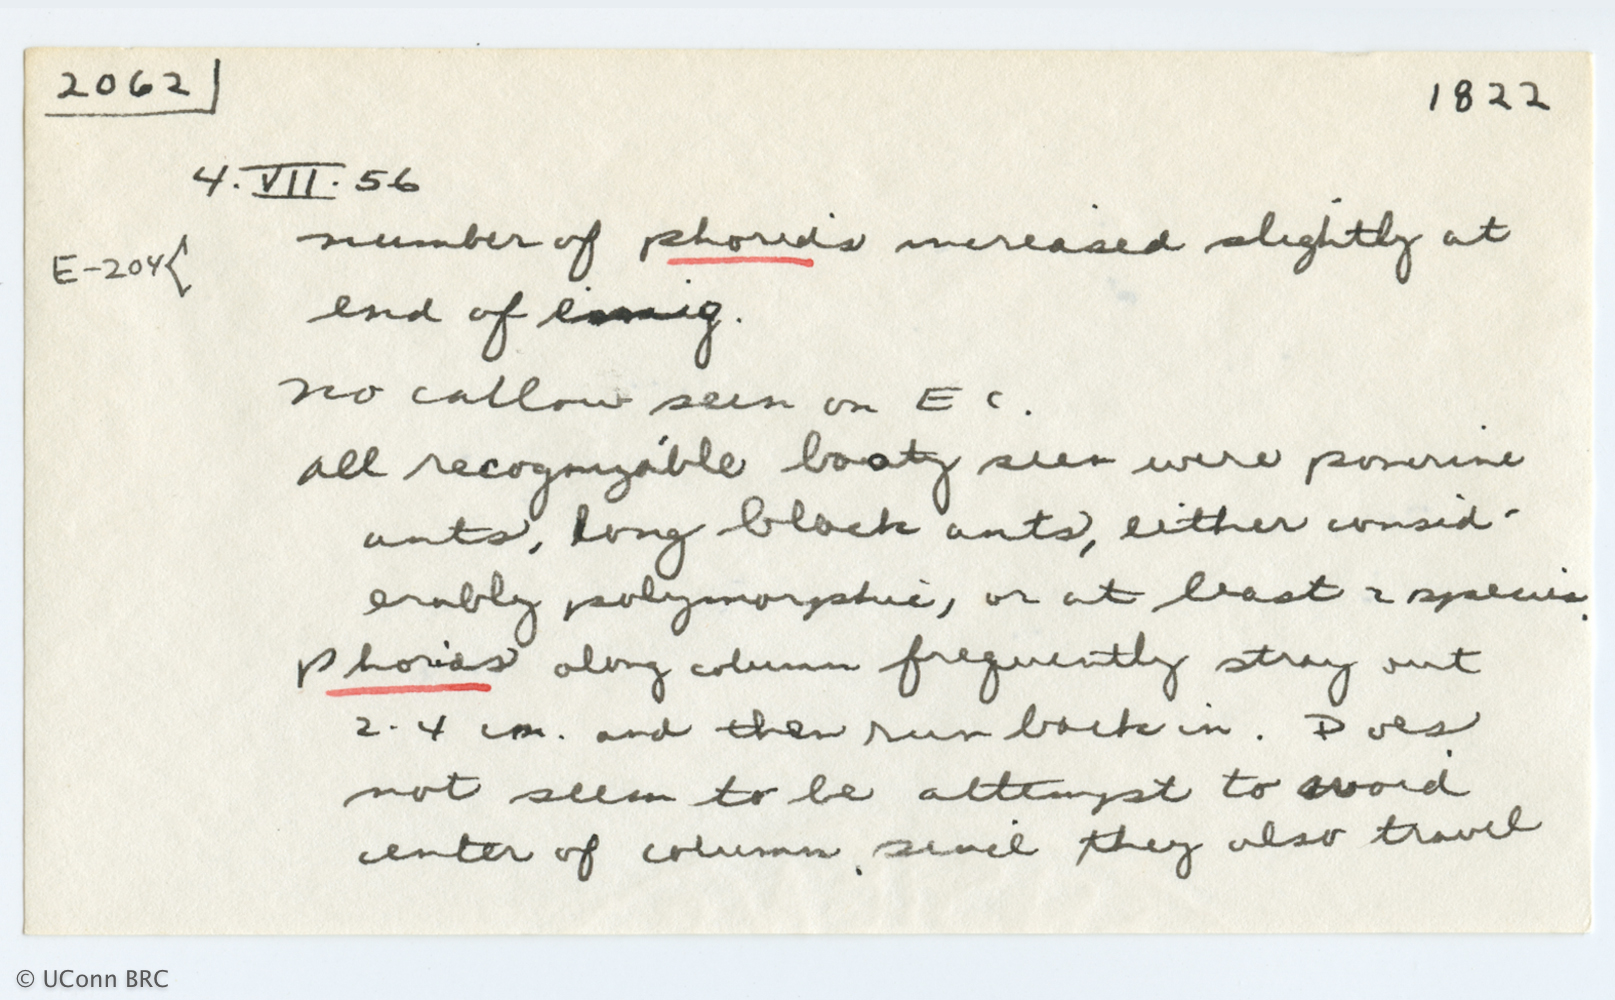 2062
1822
4.VII.56
E-204
number of phorids increased slightly at
end of emig.
No callow seen on E C.
All recognizable booty seen were ponerine
ants, long black ants, either consid-
erably polymorphic, or at least 2 species.
Phorids along column frequently stray out
2-4 cm. and then run back in. Does
not seem to be attempt to avoid
center of column, since they also travel
© UConn BRC